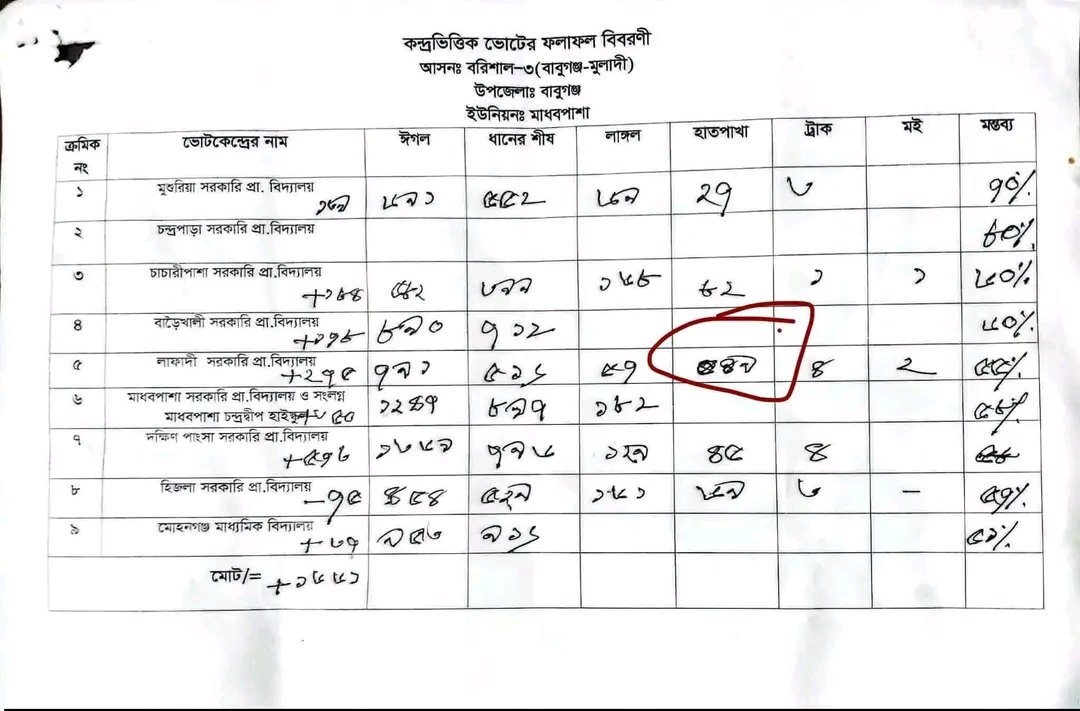 কন্দ্রভিত্তিক ভোটের ফলাফল বিবরণী
আসনঃ বরিশাল-৩(বাবুগঞ্জ-মুলাদী)
উপজেলাঃ বাবুগঞ্জ
ইউনিয়নঃ মাধবপাশা
ক্রমিক নং ভোটকেন্দ্রের নাম ঈগল ধানের শীষ লাঙ্গল হাতপাখা ট্রাক মই মন্তব্য
১ মুশুরিয়া সরকারি প্রা. বিদ্যালয় ১৩৯ ৬৯১ ৫৫২ ২৭ ৩ ৭০%
২ চন্দ্রপাড়া সরকারি প্রা.বিদ্যালয় ৮০%
৩ চাচারীপাশা সরকারি প্রা.বিদ্যালয় +১৮৪ ৩৯৯ ১৬৮ ৮২ ১ ১ ৬০%
৪ বাড়ৈখালী সরকারি প্রা.বিদ্যালয় +১৭৮ ৮৯০ ৭১২ ৬০%
৫ লাফাদী সরকারি প্রা.বিদ্যালয় +২৭৫ ৭৯১ ৫১৬ ৫৭ ৪ ২ ৫৫%
৬ মাধবপাশা সরকারি প্রা.বিদ্যালয় ও সংলগ্ন
মাধবপাশা চন্দ্রদ্বীপ হাইস্কুল +৩৫০ ১২৪৭ ৮৯৭ ১৮২ ৫৮%
৭ দক্ষিণ পাংসা সরকারি প্রা.বিদ্যালয় +৫৭৩ ১৩৬৯ ৭৯৬ ১২৯ ৪৫ ৪
৮ হিজলা সরকারি প্রা.বিদ্যালয় -৭৫ ৪৫৪ ৫২৯ ১৬১ ৬৯ ৩ — ৫৭%
৯ মোহনগঞ্জ মাধ্যমিক বিদ্যালয় +৩৭ ৯৫৩ ৯১৬ ৫১%
মোট/= +১৬৬১